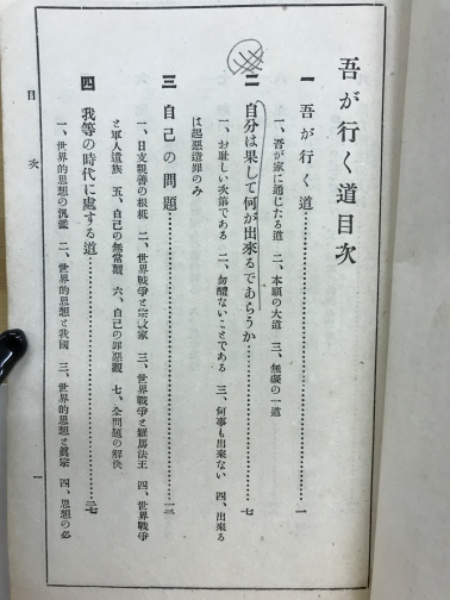 吾が行く道目次
一 吾が行く道…………一
一、吾が家に通じたる道 二、本願の大道 三、無礙の一道
二 自分は果して何が出來るであらうか…………七
一、お耻しい次第である 二、勿體ないことである 三、何事も出來ない 四、出來る
は起惡造罪のみ
三 自己の問題…………一三
一、日支親善の根柢 二、世界戰爭と宗敎家 三、世界戰爭と羅馬法王 四、世界戰爭
と軍人遺族 五、自己の無常觀 六、自己の罪惡觀 七、全問題の解決
四 我等の時代に處する道…………二七
一、世界的思想の汎濫 二、世界的思想と我國 三、世界的思想と眞宗 四、思想の必
目次
一